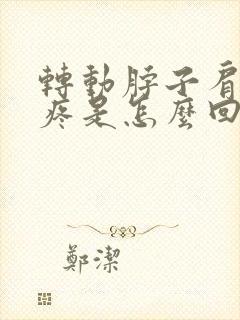 轉動脖子肩
疼是怎麼回
鄭潔